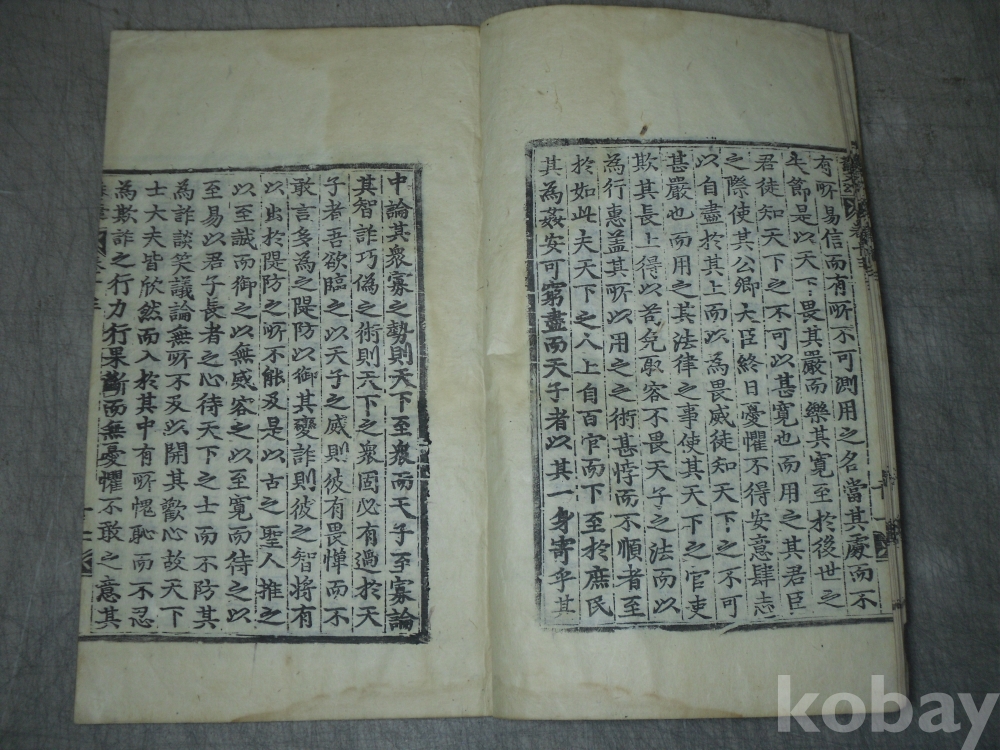 有所易信而有所不可測用之名當其處而不
失節是以天下畏其嚴而樂其寬至於後世之
君徒知天下之不可以甚寬也而用之其君臣
之際使其公卿大臣終日憂懼不得安意肆志
以自盡於其上而以為畏威徒知天下之不可
甚嚴也而用之其法律之事使其天下之官吏
欺其長上得以苟免取容不畏天子之法而以
為行惠盖其所以用之之術甚悖而不順者至
於如此夫天下之人上自百官而下至於庶民
其為姦安可窮盡而天子者以其一身寄乎其
中論其衆寡之勢則天下至衆而天子至寡論
其智詐巧僞之術則天下之衆固必有過於天
子者吾欲臨之以天子之威則彼有畏憚而不
敢言多為之隄防以御其變詐則彼之智將有
以出於隄防之所不能及是以古之聖人推之
以至誠而御之以無威容之以至寬而待之以
至易以君子長者之心待天下之士而不防其
為詐談笑議論無所不及以開其歡心故天下
士大夫皆欣然而入於其中有所愧恥而不忍
為欺詐之行力行果斷而無憂懼不敢之意其
kobay